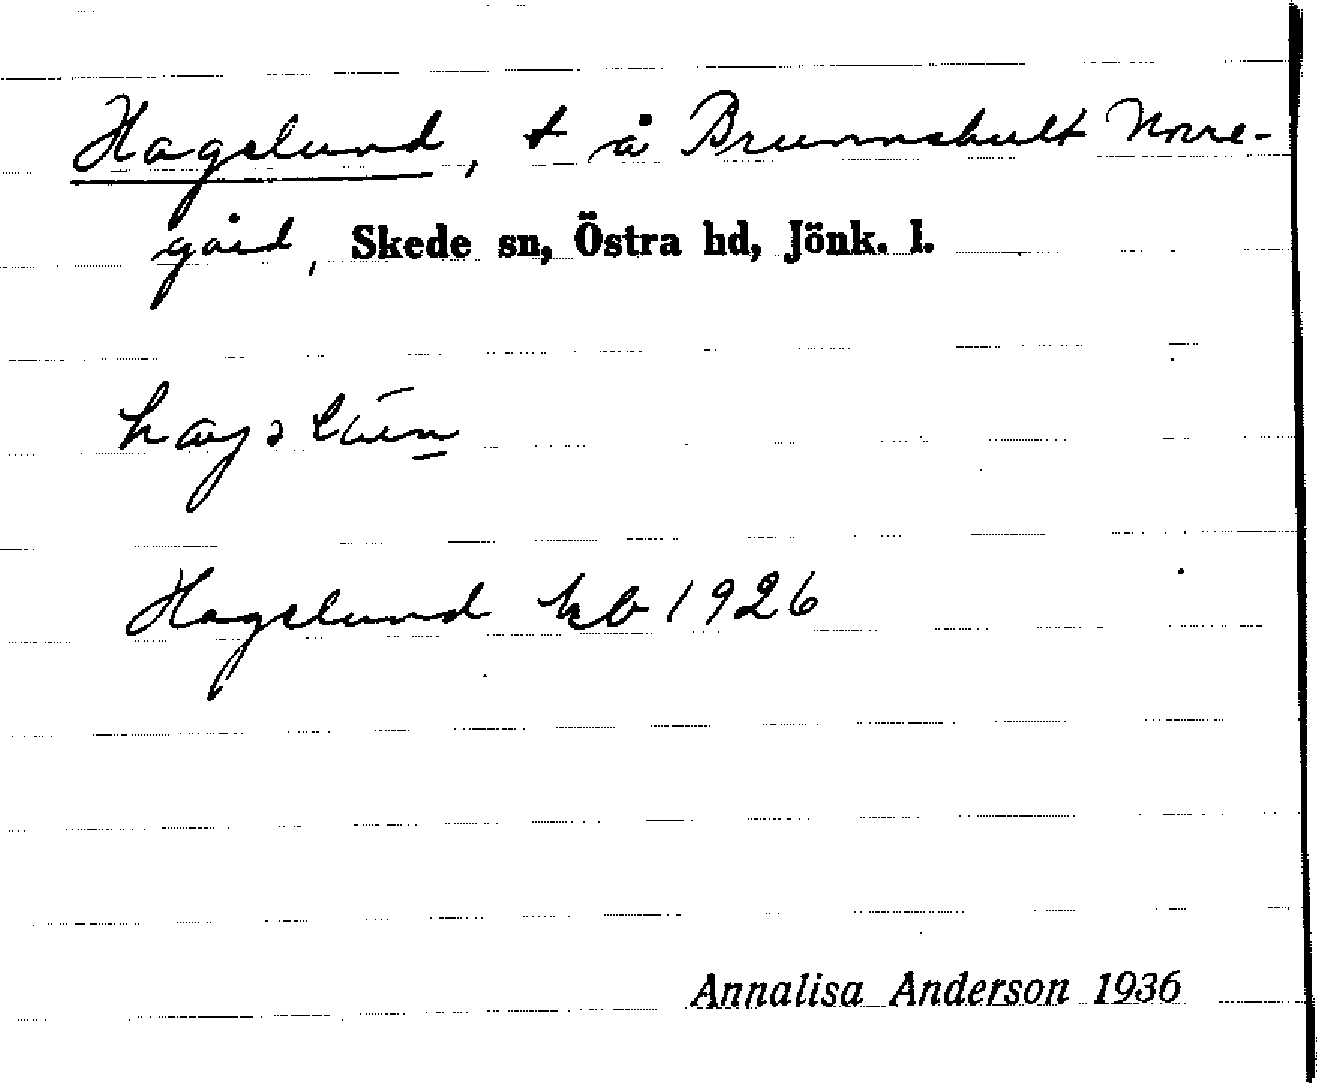 Hagslund, t å Brunnshult Norre-
gård, Skede sn, Östra hd, Jönk. l.
Hagslund kb 1926
Annalisa Anderson 1936